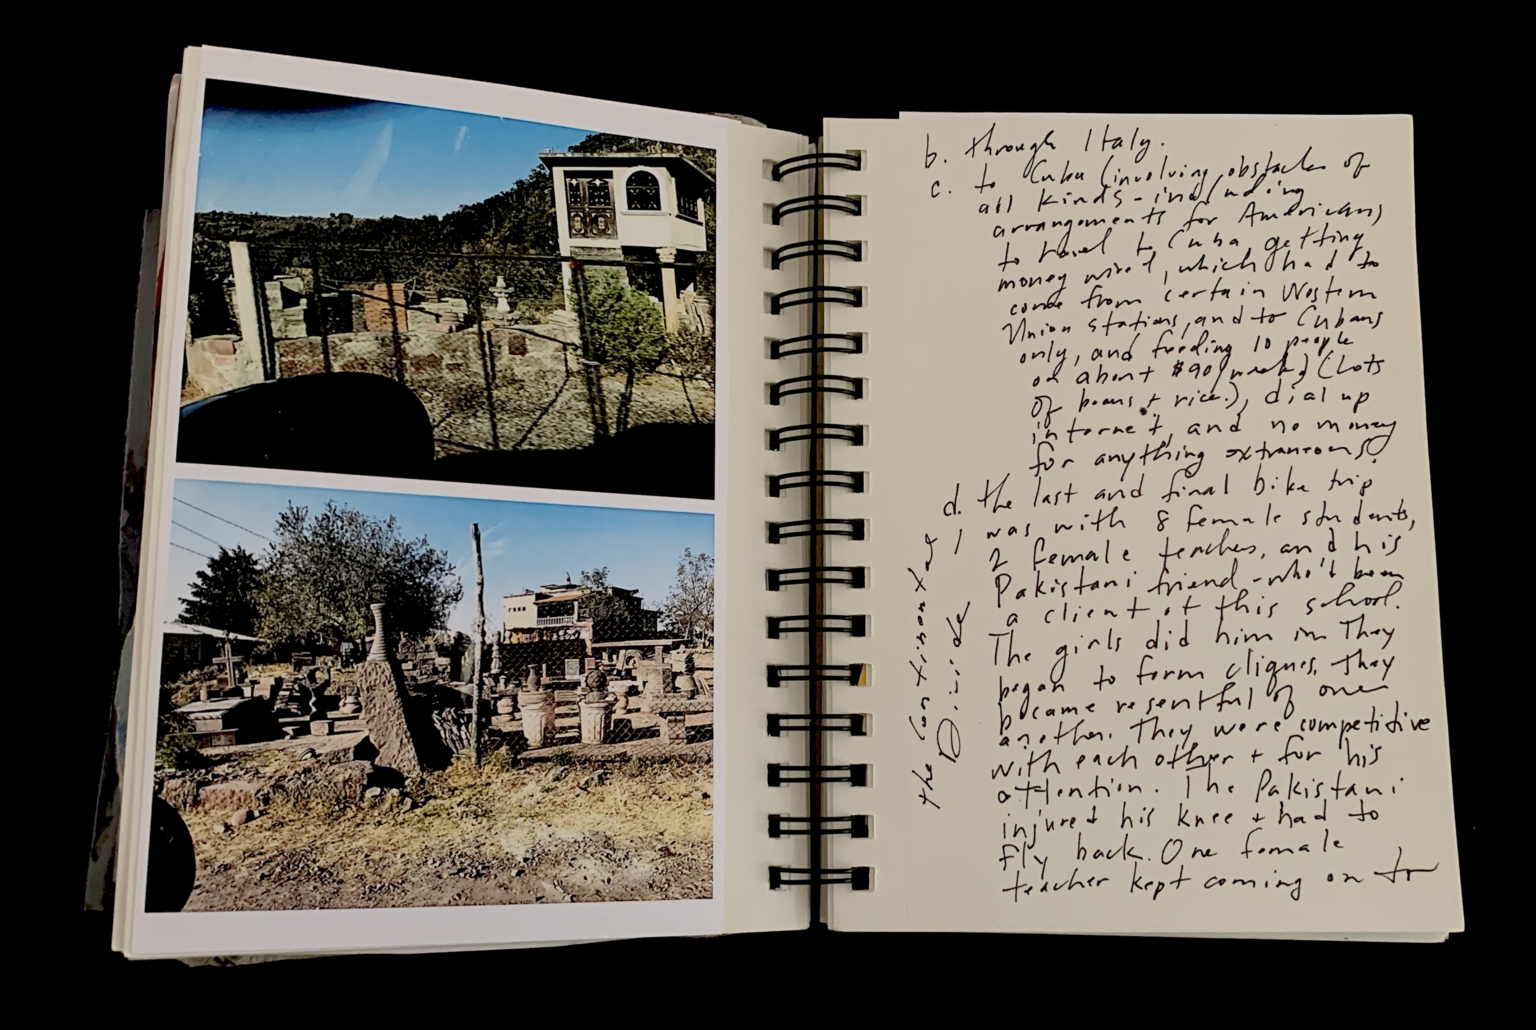 b. through Italy.
c. to Cuba (involving obstacles of
all kinds - including
arrangements for Americans
to travel to Cuba, getting
money wired, which had to
come from certain Western
Union stations, and to Cubans
only, and feeding 10 people
on about $90/week) (Lots
of beans + rice.), dial up
internet, and no money
for anything extraneous.
d. the last and final bike trip
the Continental
Divide
I was with 8 female students,
2 female teachers, and his
Pakistani friend - who'd been
a client at this school.
The girls did him in. They
began to form cliques, they
became resentful of one
another. They were competitive
with each other + for his
attention. The Pakistani
injured his knee + had to
fly back. One female
teacher kept coming on to